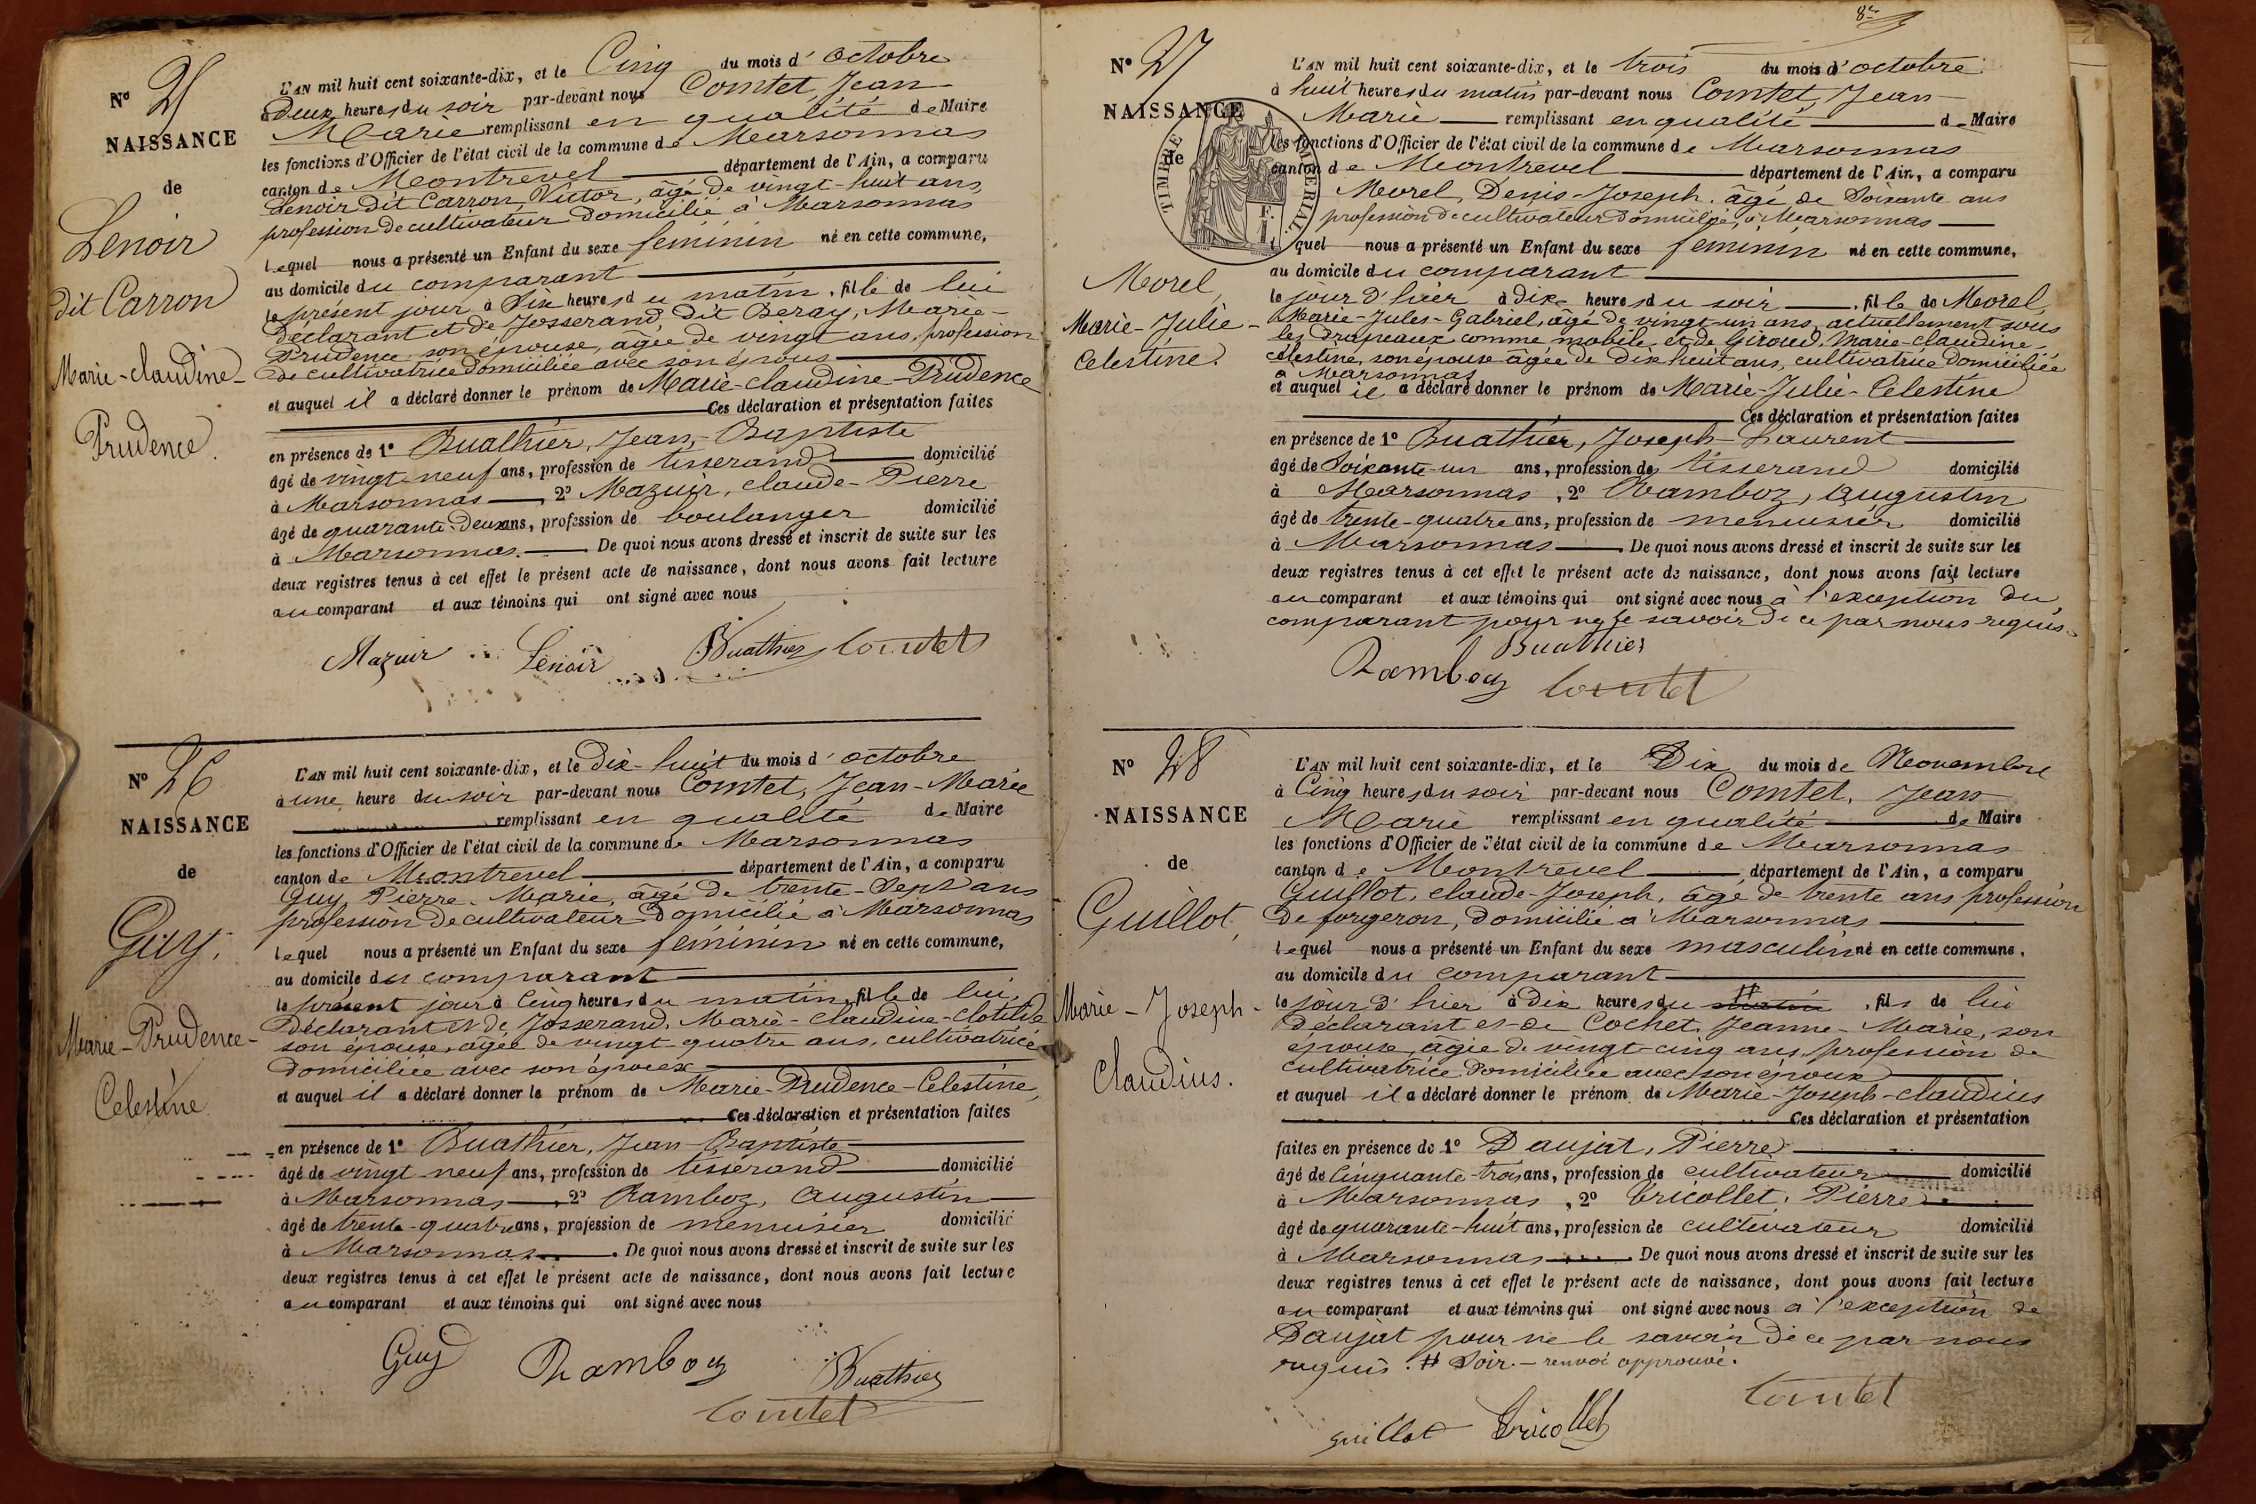 N° 25
NAISSANCE
de
Lenoir
dit Carron
Marie-claudine-
Prudence.
L'AN mil huit cent soixante-dix, et le Cinq du mois d'octobre
à Deux heures du soir par-devant nous Comtet, Jean-
Marie remplissant en qualité de Maire
les fonctions d'Officier de l'état civil de la commune de Marsonnas
canton de Montrevel département de l'Ain, a comparu
Lenoir dit Carron, Victor, âgé de vingt-huit ans,
profession de cultivateur domicilié à Marsonnas
lequel nous a présenté un Enfant du sexe féminin né en cette commune,
au domicile du comparant
le présent jour à Six heures du matin, fille de lui
déclarant et de Josserand dit Beray, Marie-
Prudence son épouse, agée de vingt ans, profession
de cultivatrice domiciliée avec son époux
et auquel il a déclaré donner le prénom de Marie-claudine-Prudence
Ces déclaration et présentation faites
en présence de 1° Buathier, Jean-Baptiste
âgé de vingt-neuf ans, profession de tisserand domicilié
à Marsonnas 2° Mazuir, claude-Pierre
âgé de quarante-deux ans, profession de boulanger domicilié
à Marsonnas. De quoi nous avons dressé et inscrit de suite sur les
deux registres tenus à cet effet le présent acte de naissance, dont nous avons fait lecture
au comparant et aux témoins qui ont signé avec nous
Mazuir Lenoir Buathier Comtet
N° 26
NAISSANCE
de
Guy,
Marie-Prudence-
Celestine
L'AN mil huit cent soixante-dix, et le Dix-huit du mois d'octobre
à une heure du soir par-devant nous Comtet, Jean-Marie
remplissant en qualité de Maire
les fonctions d'Officier de l'état civil de la commune de Marsonnas
canton de Montrevel département de l'Ain, a comparu
Guy, Pierre-Marie, âgé de trente-Sept ans
profession de cultivateur domicilié à Marsonnas
lequel nous a présenté un Enfant du sexe féminin né en cette commune,
au domicile du comparant
le présent jour à Cinq heures du matin, fille de lui
Déclarant et de Josserand, Marie-claudine-Clotilde
son épouse, agée de vingt-quatre ans, cultivatrice
domiciliée avec son époux
et auquel il a déclaré donner le prénom de Marie-Prudence-Celestine,
Ces déclaration et présentation faites
en présence de 1° Buathier, Jean-Baptiste
âgé de vingt neuf ans, profession de tisserand domicilié
à Marsonnas, 2° Ramboz, Augustin
âgé de trente-quatre ans, profession de menuisier domicilié
à Marsonnas. De quoi nous avons dressé et inscrit de suite sur les
deux registres tenus à cet effet le présent acte de naissance, dont nous avons fait lecture
au comparant et aux témoins qui ont signé avec nous
Guy Ramboz Buathier
Comtet
8e
N° 27
NAISSANCE
de
TIMBRE IMPERIAL.
Morel,
Marie-Julie-
Celestine.
L'AN mil huit cent soixante-dix, et le trois du mois d'octobre
à huit heures du matin par-devant nous Comtet, Jean-
Marie remplissant en qualité de Maire
les fonctions d'Officier de l'état civil de la commune de Marsonnas
canton de Montrevel département de l'Ain, a comparu
Morel, Denis-Joseph, âgé de Soixante ans
profession de cultivateur domicilié à Marsonnas
quel nous a présenté un Enfant du sexe féminin né en cette commune,
au domicile du comparant
le jour d'hier à dix heures du soir, fille de Morel,
Marie-Jules-Gabriel, âgé de vingt-un ans, actuellement sous
les drapeaux comme mobile, et de Giroud, Marie-claudine-
célestine, son épouse âgée de Dix huit ans, cultivatrice domiciliée
à Marsonnas
et auquel il a déclaré donner le prénom de Marie-Julie-Celestine
Ces déclaration et présentation faites
en présence de 1° Buathier, Joseph-Laurent
âgé de Soixante-un ans, profession de tisserand domicilié
à Marsonnas, 2° Ramboz, Augustin
âgé de trente-quatre ans, profession de menuisier domicilié
à Marsonnas. De quoi nous avons dressé et inscrit de suite sur les
deux registres tenus à cet effet le présent acte de naissance, dont nous avons fait lecture
au comparant et aux témoins qui ont signé avec nous à l'exception du
comparant pour ne le savoir de ce par nous requis.
Buathier
Ramboz Comtet
N° 28
NAISSANCE
de
Guillot,
Marie-Joseph-
Claudius.
L'AN mil huit cent soixante-dix, et le Dix du mois de Novembre
à Cinq heures du soir par-devant nous Comtet, Jean
Marie remplissant en qualité de Maire
les fonctions d'Officier de l'état civil de la commune de Marsonnas
canton de Montrevel département de l'Ain, a comparu
Guillot, claude-Joseph, âgé de trente ans profession
de forgeron, domicilié à Marsonnas
lequel nous a présenté un Enfant du sexe masculin né en cette commune,
au domicile du comparant
le jour d'hier à dix heures du matin #, fils de lui
Déclarant et de Cochet, Jeanne-Marie, son
épouse, agée de vingt-cinq ans, profession de
cultivatrice domiciliée avec son époux
et auquel il a déclaré donner le prénom de Marie-Joseph-claudius
Ces déclaration et présentation
faites en présence de 1° Daujat, Pierre
âgé de Cinquante-trois ans, profession de cultivateur domicilié
à Marsonnas, 2° Tricollet, Pierre
âgé de quarante-huit ans, profession de cultivateur domicilié
à Marsonnas. De quoi nous avons dressé et inscrit de suite sur les
deux registres tenus à cet effet le présent acte de naissance, dont nous avons fait lecture
au comparant et aux témoins qui ont signé avec nous à l'exception de
Daujat pour ne le savoir de ce par nous
requis. # Soir. - renvoi approuvé.
Comtet
Guillot Tricollet